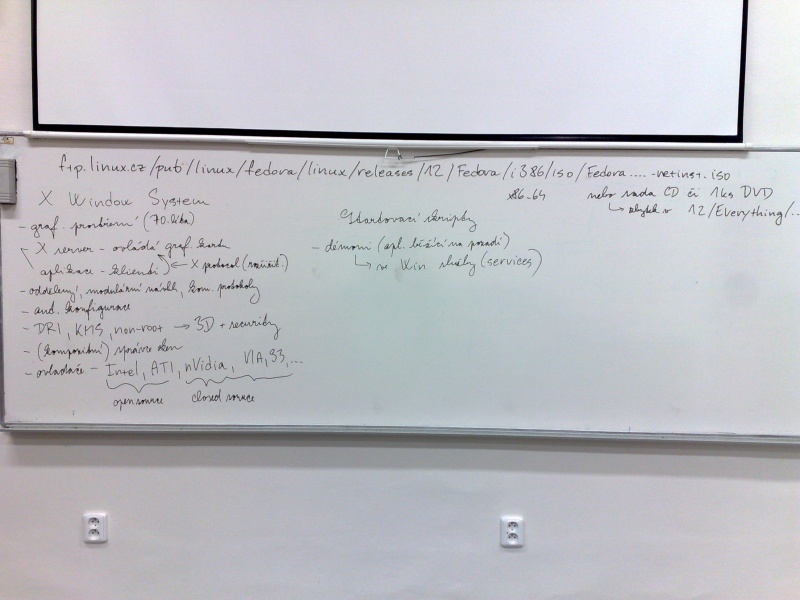 ftp.linux.cz/pub/linux/fedora/linux/releases/12/Fedora/i386/iso/Fedora....-netinst.iso
x86-64
nebo sada CD či 1ks DVD
↳ zbytek v 12/Everything/...
X Window System
- graf. prostředí (70. léta)
- X server - ovládá graf. kartu
aplikace - klienti ← X protocol (rozšiř.)
- oddělený, modulární návrh, kom. protokoly
- aut. konfigurace
- DRI, KMS, non-root → 3D + security
- (kompozitní) správce oken
- ovladače - Intel, ATI, nVidia, VIA, S3, ...
open source closed source
Startovací skripty
- démoni (apl. běžící na pozadí)
↳ ve Win služby (services)